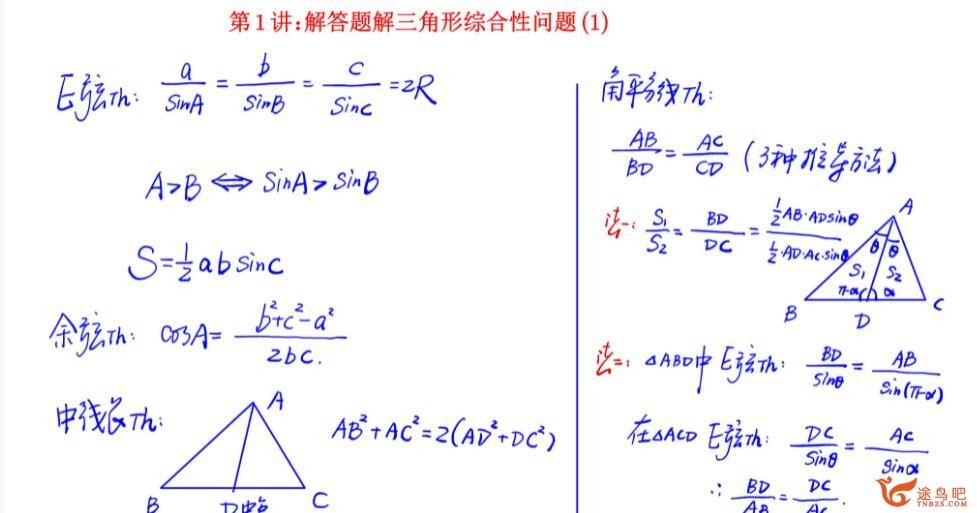 第1讲:解答题解三角形综合性问题(1)
正弦Th: a/sinA = b/sinB = c/sinC = 2R
A>B ⟺ sinA>sinB
S=½absinC
余弦Th: cosA= (b²+c²-a²)/2bc.
中线长Th:
AB²+AC²=2(AD²+DC²)
A
B
D中点
C
角平分线Th:
AB/BD = AC/CD (3种推导方法)
法一: S₁/S₂ = BD/DC = ½AB·ADsinθ / ½·AD·AC·sinθ
A
θ θ
S₁ S₂
π-α α
B
D
C
法二: △ABD中 正弦Th: BD/sinθ = AB/sin(π-α)
在△ACD 正弦Th: DC/sinθ = AC/sinα
∴ BD/AB = DC/AC.
途鸟吧
TNBZS.COM